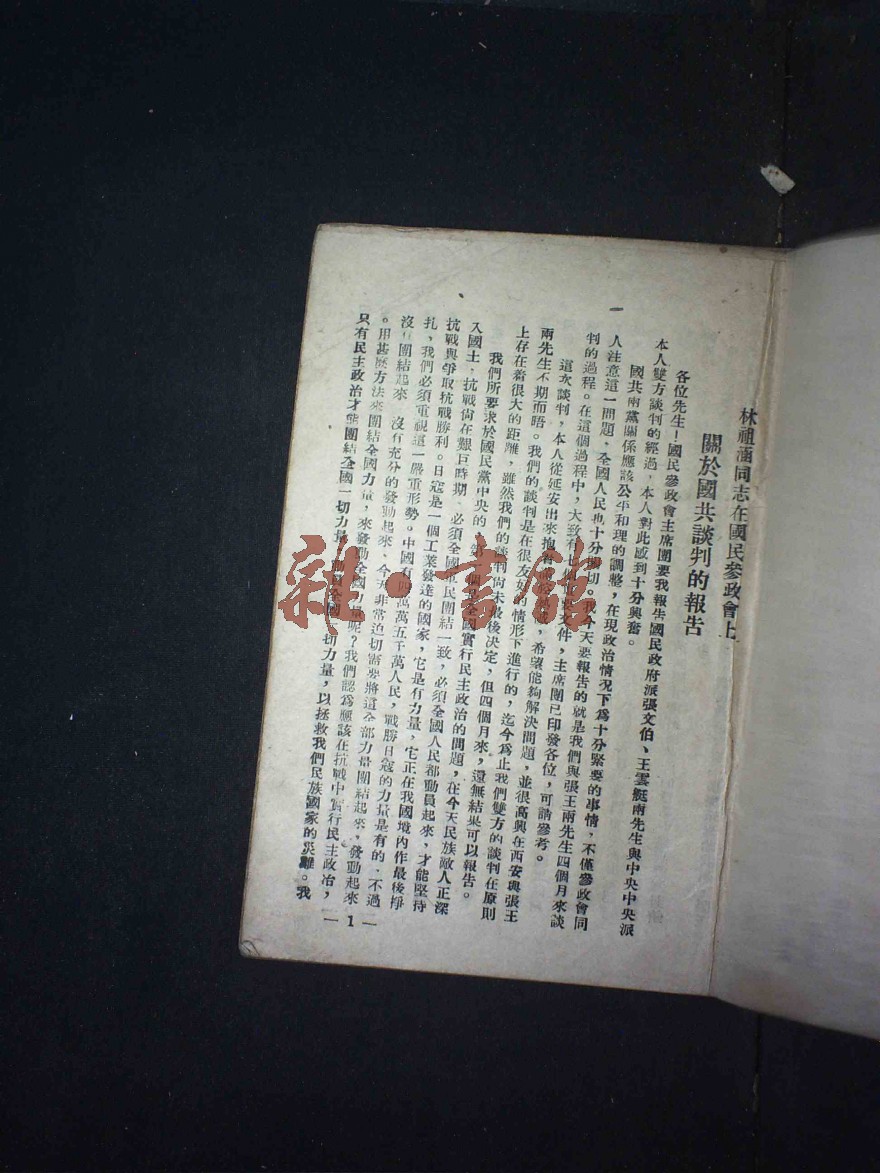 林祖涵同志在國民參政會上
關於國共談判的報告
各位先生！國民參政會主席團要我報告國民政府派張文伯、王雲艇兩先生與中央中央派
本人雙方談判的經過，本人對此感到十分興奮。
國共兩黨關係應該公平和理的調整，在現政治情况下爲十分緊要的事情，不僅參政會同
人注意這一問題，全國人民也十分關切。我今天要報告的就是我們與張王兩先生四個月來談
判的過程。在這個過程中，大致有文件，主席團已印發各位，可請參考。
這次談判，本人從延安出來抱希望能夠解決問題，並很高興在西安與張王
兩先生不期而晤。我們的談判是在很友好的情形下進行的，迄今爲止我們雙方的談判在原則
上存在着很大的距離，雖然我們的談判尚未最後決定，但四個月來，還無結果可以報告。
我們所要求於國民黨中央的，第一個是全國實行民主政治的問題，在今天民族敵人正深
入國土，抗戰尚在艱巨時期，必須全國軍民團結一致，必須全國人民都動員起來，才能堅持
抗戰與爭取抗戰勝利。日寇是一個工業發達的國家，它是有力量，它正在我國境內作最後掙
扎，我們必須重視這一嚴重形勢。中國有四萬萬五千萬人民，戰勝日寇的力量是有的，不過
沒有團結起來，沒有充分的發動起來，今天非常迫切需要將這全部力量團結起來，發動起來
。用甚麼方法來團結全國力量，來發動全國力量呢？我們認爲應該在抗戰中實行民主政治，
只有民主政治才能團結全國一切力量，動員全國一切力量，以拯救我們民族國家的災難。我
— 1 —
雜·書館